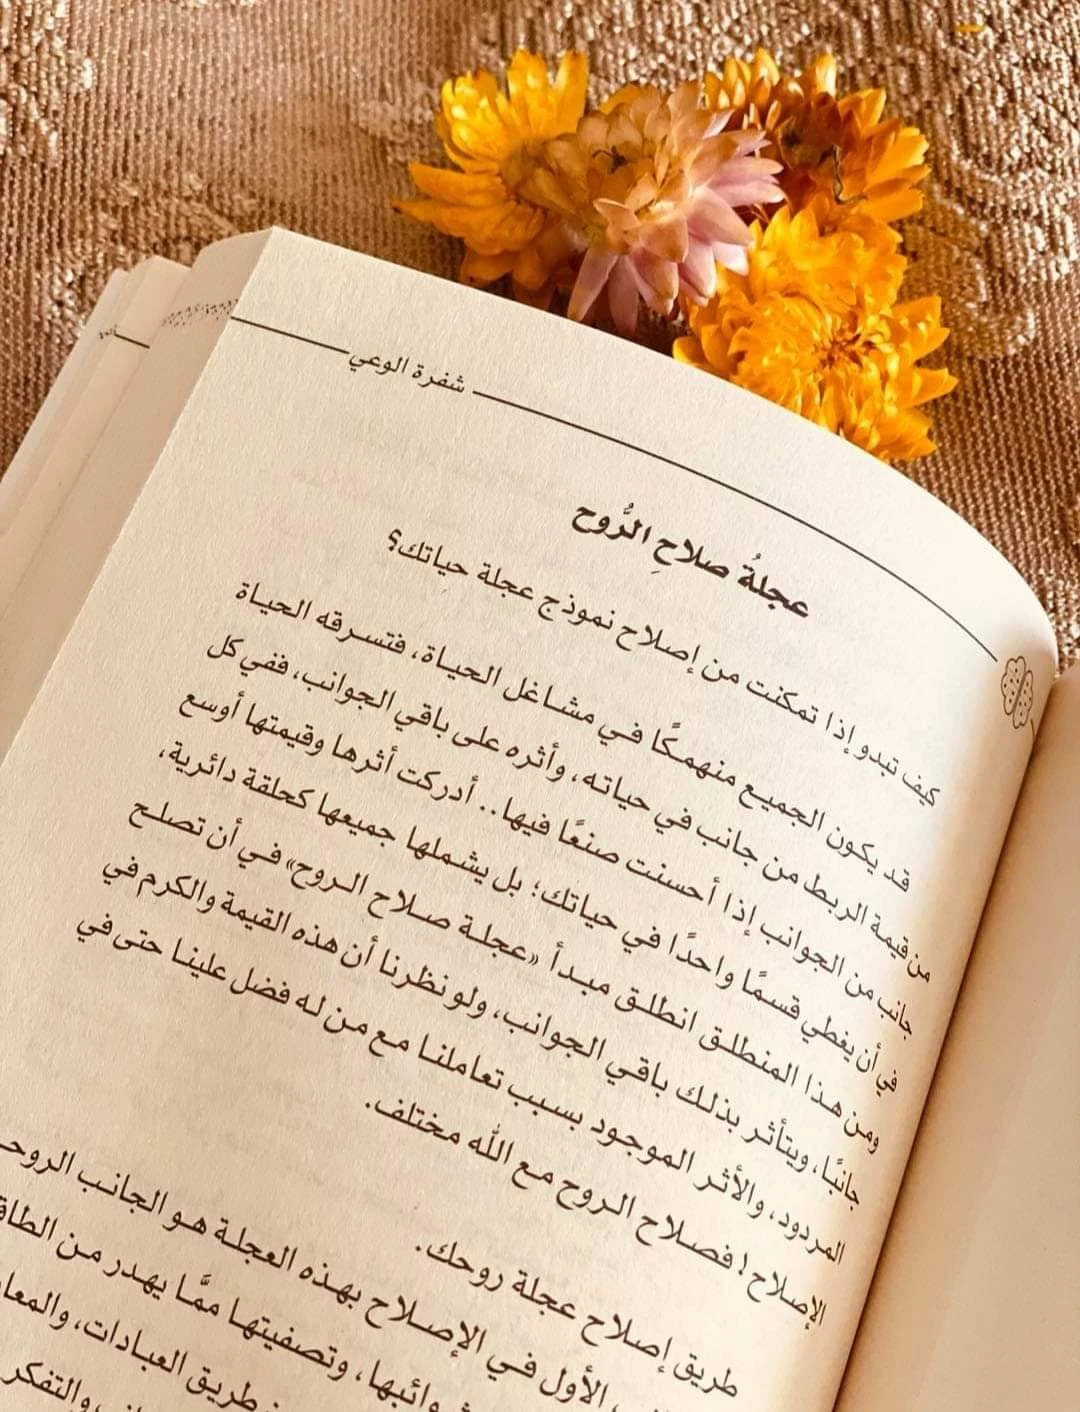 شفرة الوعي
عجلةُ صلاحِ الرُّوح
كيف تبدو إذا تمكنت من إصلاح نموذج عجلة حياتك؟
قد يكون الجميع منهمكًا في مشاغل الحياة، فتسرقه الحياة
من قيمة الربط من جانب في حياته، وأثره على باقي الجوانب، ففي كل
جانب من الجوانب إذا أحسنت صنعًا فيها.. أدركت أثرها وقيمتها أوسع
في أن يغطي قسمًا واحدًا في حياتك؛ بل يشملها جميعها كحلقة دائرية،
ومن هذا المنطلق انطلق مبدأ «عجلة صلاح الروح» في أن تصلح
جانبًا، ويتأثر بذلك باقي الجوانب، ولو نظرنا أن هذه القيمة والكرم في
المردود، والأثر الموجود بسبب تعاملنا مع من له فضل علينا حتى في
الإصلاح! فصلاح الروح مع الله مختلف.
طريق إصلاح عجلة روحك.
الأول في الإصلاح بهذه العجلة هو الجانب
وتصفيتها ممَّا يهدر من
طريق العبادات،
والتفكر